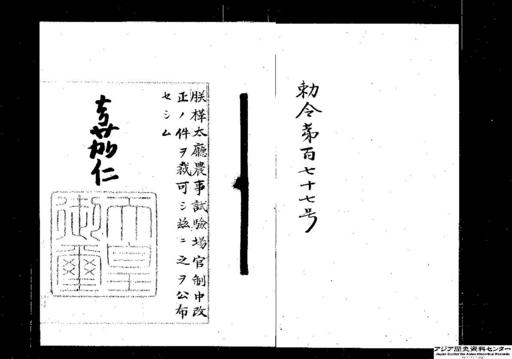 勅令第百七十七号
朕樺太廳農事試驗場官制中改
正ノ件ヲ裁可シ茲ニ之ヲ公布
セシム
嘉仁
天皇
御璽
アジア歴史資料センター
Japan Center for Asian Historical Records